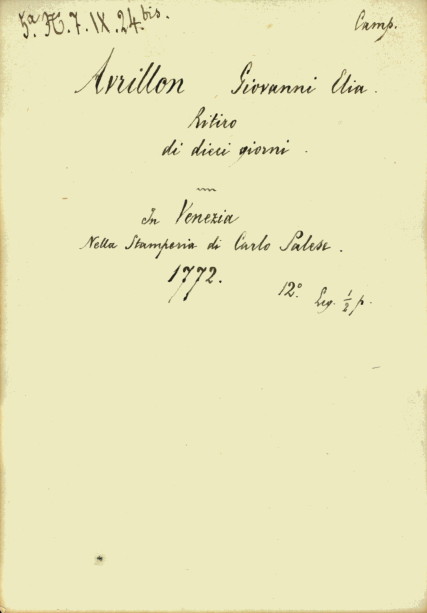 5ª. H. 7. IX. 24 bis.
Camp.
Avrillon Giovanni Elia.
Ritiro
di dieci giorni.
In Venezia
Nella Stamperia di Carlo Palese.
1772.
12º. Leg. ½ p.